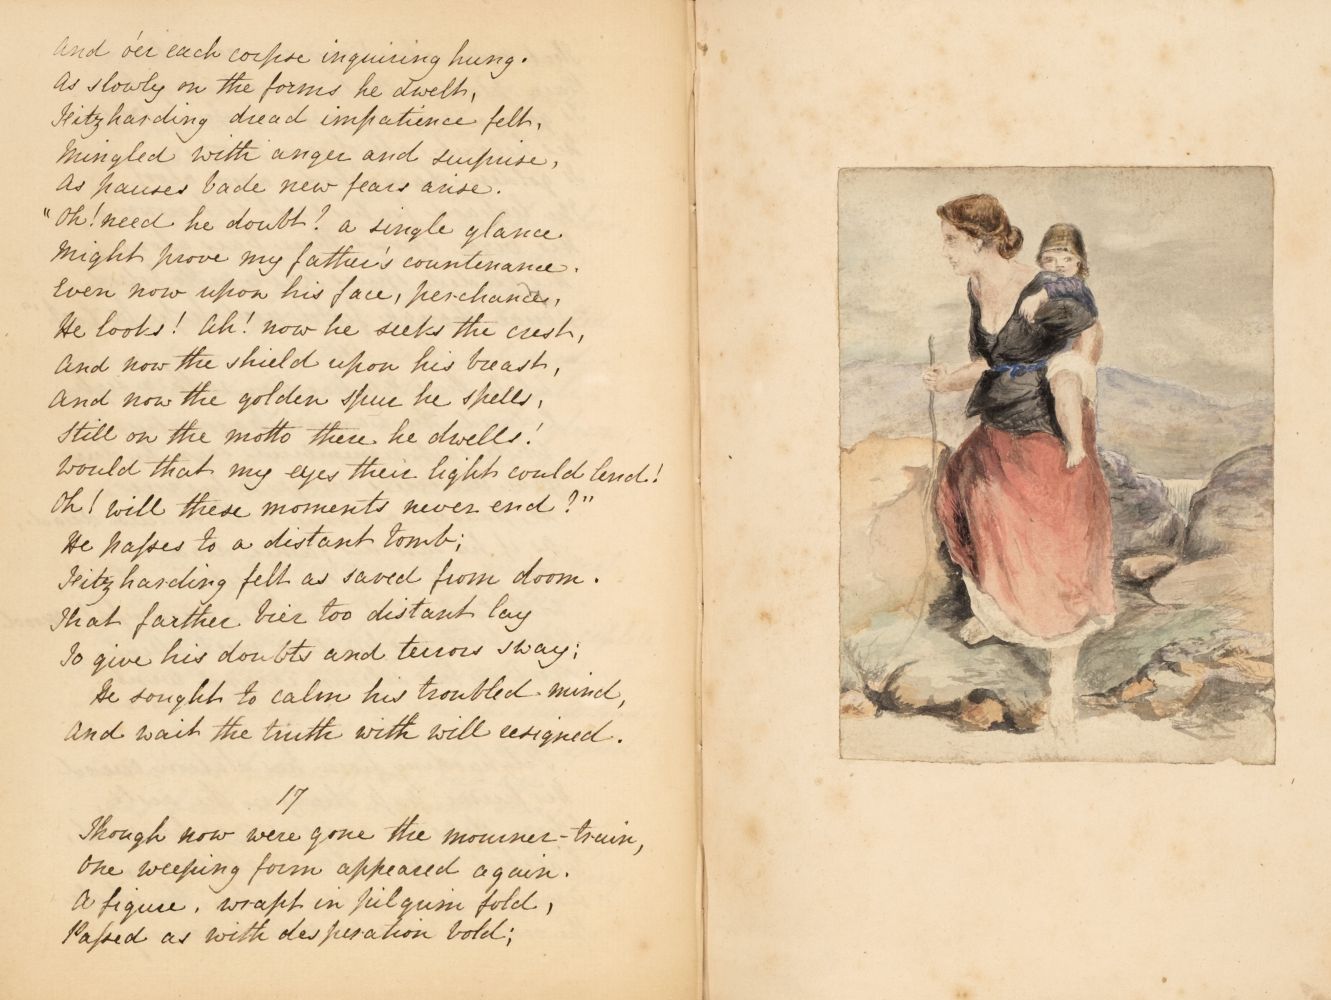 And o'er each corpse inquiring hung.
As slowly on the forms he dwelt,
Fitzharding dread impatience felt,
Mingled with anger and surprise,
As pauses bade new fears arise.
"Oh! need he doubt? a single glance
Might prove my father's countenance.
Even now upon his face, perchance,
He looks! Ah! now he seeks the crest,
And now the shield upon his breast,
And now the golden spur he spells,
Still on the motto there he dwells!
Would that my eyes their light could lend!
Oh! will these moments never end?"
He passes to a distant tomb;
Fitzharding felt as saved from doom.
That farther bier too distant lay
To give his doubts and terrors sway;
He sought to calm his troubled mind,
And wait the truth with will resigned.
17
Though now were gone the mourner-train,
One weeping form appeared again.
A figure, wrapt in pilgrim fold,
Passed as with desperation bold;